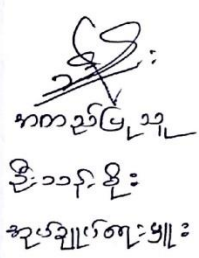 အကာကည်ပြုသူ
ဦးသန်းစိုး
အုပ်ချုပ်ရေးမှူး